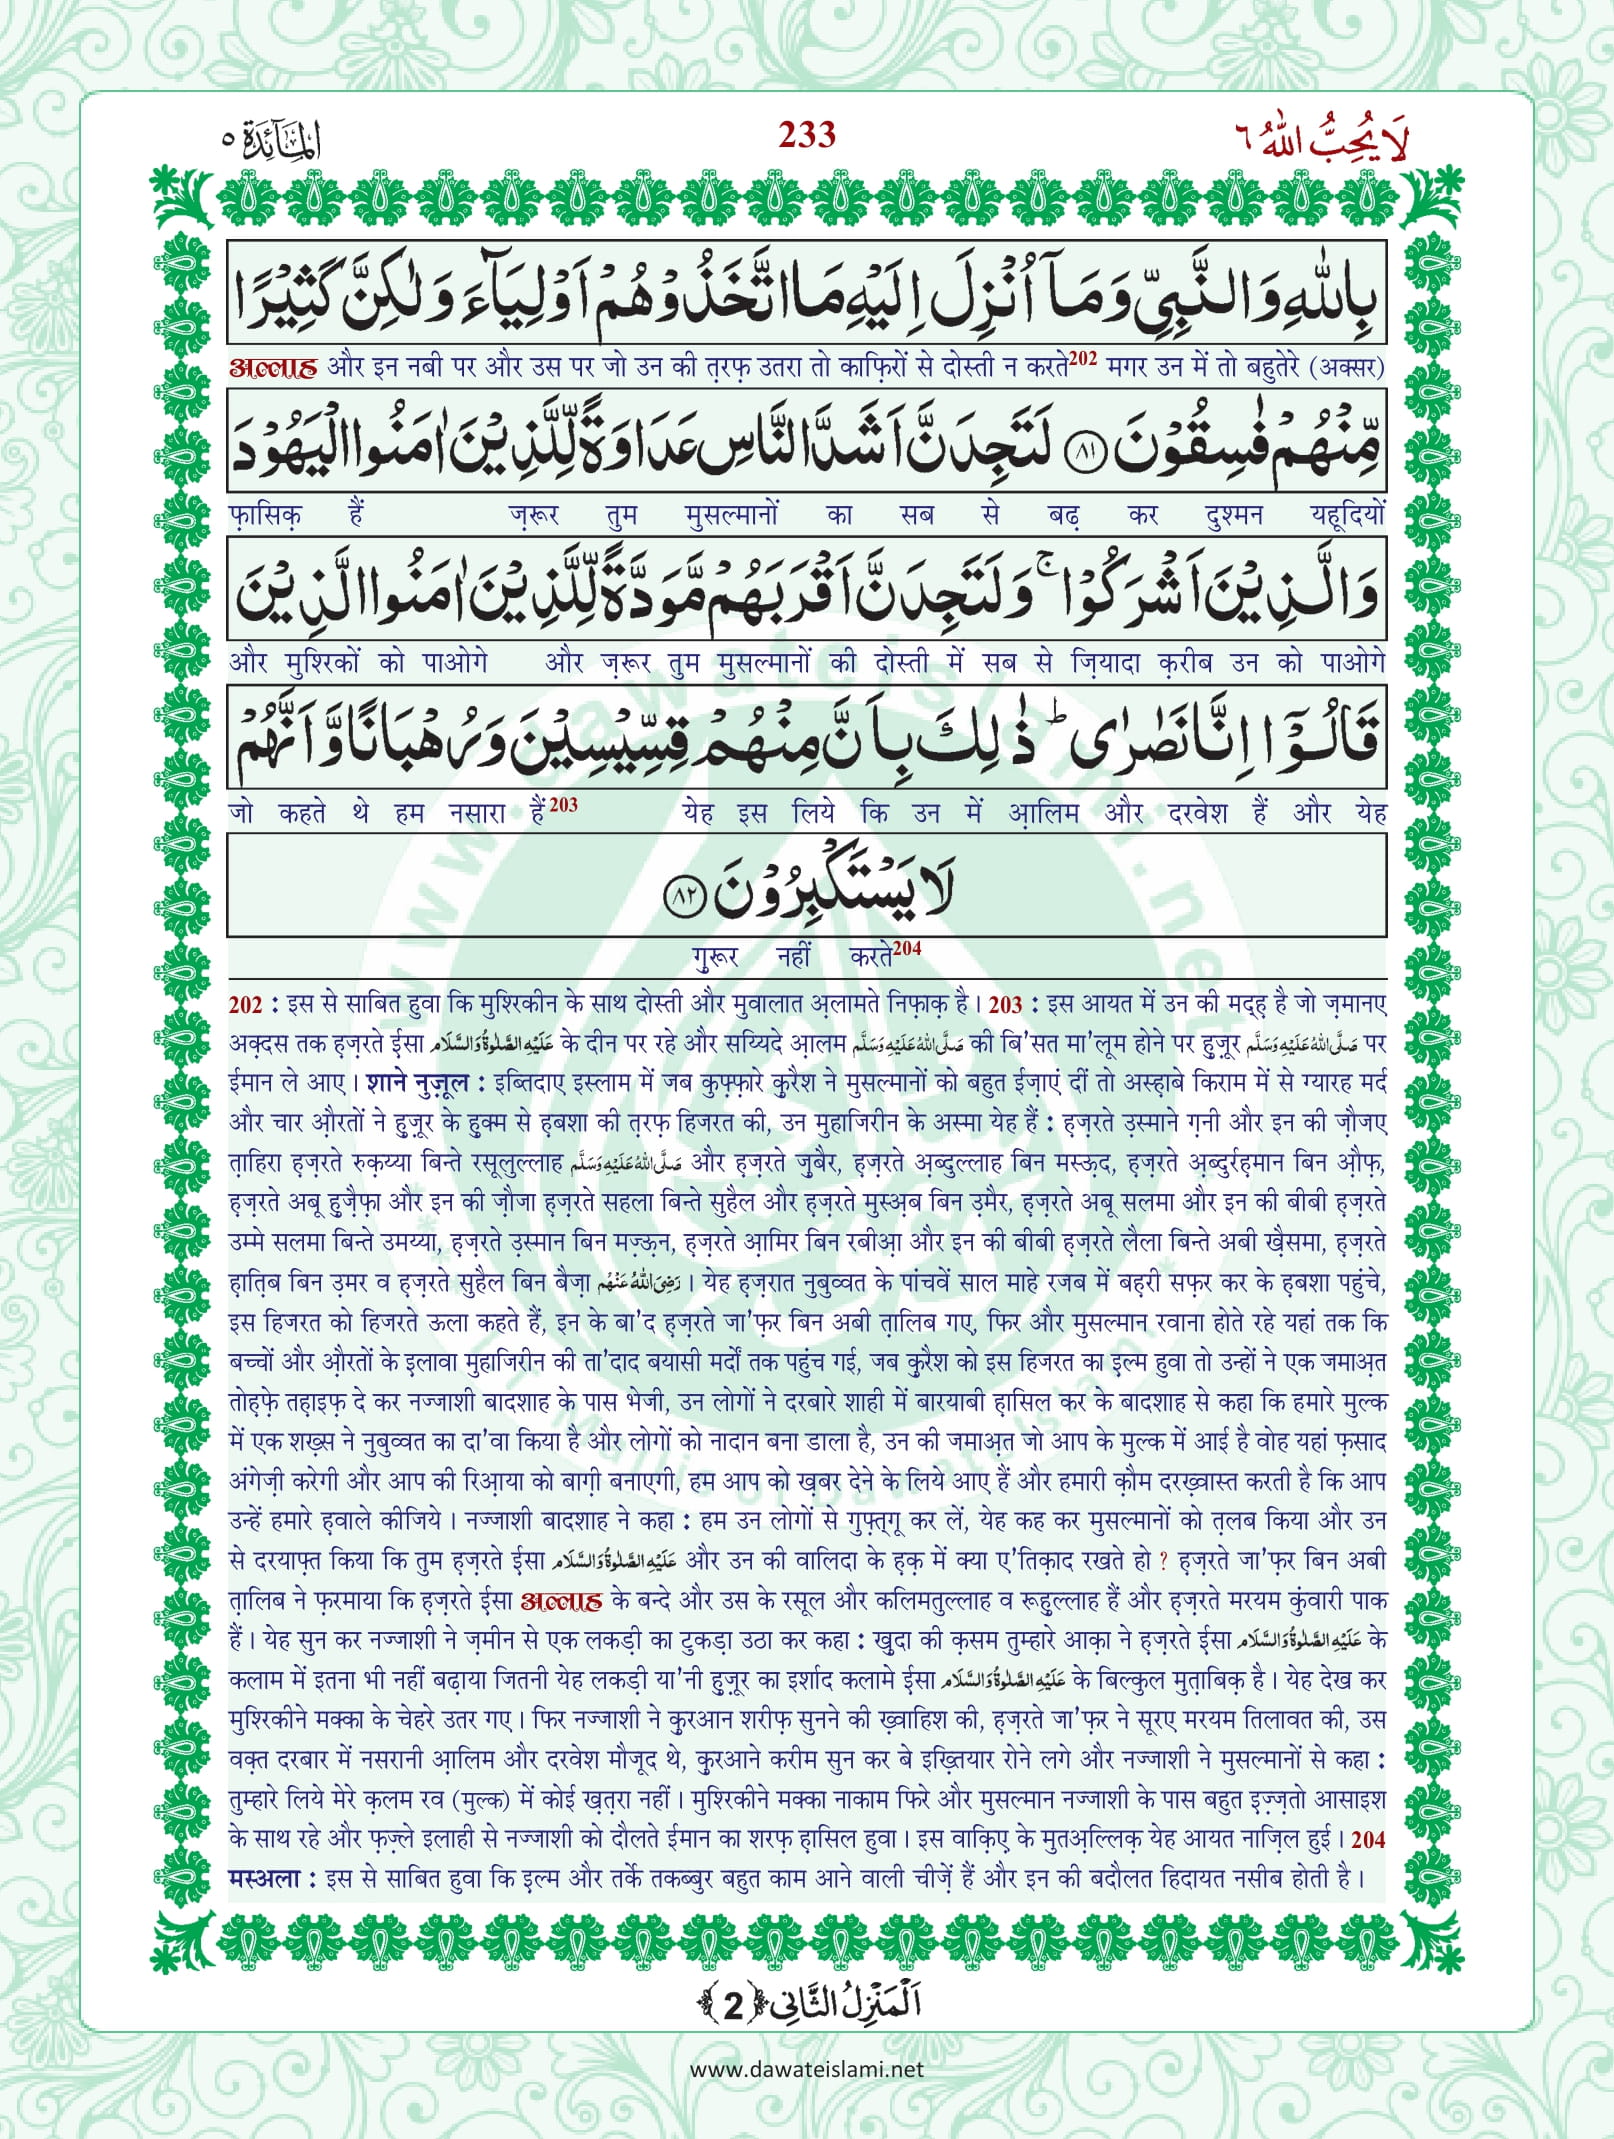 اَلْمَآئِدَۃ ٥
233
لَا یُحِبُّ اللّٰہُ ٦
بِاللّٰهِ وَالنَّبِیِّ وَمَاۤ اُنْزِلَ اِلَیْهِ مَا اتَّخَذُوْهُمْ اَوْلِیَآءَ وَلٰكِنَّ كَثِیْرًا
अल्लाह और इन नबी पर और उस पर जो उन की त़रफ़ उतरा तो काफ़िरों से दोस्ती न करते202 मगर उन में तो बहुतेरे (अक्सर)
مِّنْهُمْ فٰسِقُوْنَ ﴿٨١﴾ لَتَجِدَنَّ اَشَدَّ النَّاسِ عَدَاوَةً لِّلَّذِیْنَ اٰمَنُوا الْیَهُوْدَ
फ़ासिक़ हैं ज़रूर तुम मुसल्मानों का सब से बढ़ कर दुश्मन यहूदियों
وَالَّذِیْنَ اَشْرَكُوْا ۚ وَلَتَجِدَنَّ اَقْرَبَهُمْ مَّوَدَّةً لِّلَّذِیْنَ اٰمَنُوا الَّذِیْنَ
और मुश्रिकों को पाओगे और ज़रूर तुम मुसल्मानों की दोस्ती में सब से ज़ियादा क़रीब उन को पाओगे
قَالُوْۤا اِنَّا نَصٰرٰی ؕ ذٰلِكَ بِاَنَّ مِنْهُمْ قِسِّیْسِیْنَ وَرُهْبَانًا وَّاَنَّهُمْ
जो कहते थे हम नसारा हैं203 येह इस लिये कि उन में आ़लिम और दरवेश हैं और येह
لَا یَسْتَكْبِرُوْنَ ﴿٨٢﴾
गुरूर नहीं करते204
202 : इस से साबित हुवा कि मुश्रिकीन के साथ दोस्ती और मुवालात अ़लामते निफ़ाक़ है। 203 : इस आयत में उन की मद्ह़ है जो ज़मानए
अक़्दस तक ह़ज़रते ईसा عَلَیْہِ الصَّلٰوۃُ وَالسَّلَام के दीन पर रहे और सय्यिदे आ़लम صَلَّی اللہُ عَلَیْہِ وَسَلَّم की बि'सत मा'लूम होने पर हुज़ूर صَلَّی اللہُ عَلَیْہِ وَسَلَّم पर
ईमान ले आए। शाने नुज़ूल : इब्तिदाए इस्लाम में जब कुफ़्फ़ारे क़ुरैश ने मुसल्मानों को बहुत ईज़ाएं दीं तो अस्ह़ाबे किराम में से ग्यारह मर्द
और चार औ़रतों ने हुज़ूर के हुक्म से ह़बशा की त़रफ़ हिजरत की, उन मुहाजिरीन के अस्मा येह हैं : ह़ज़रते उ़स्माने ग़नी और इन की ज़ौजए
त़ाहिरा ह़ज़रते रुक़य्या बिन्ते रसूलुल्लाह صَلَّی اللہُ عَلَیْہِ وَسَلَّم और ह़ज़रते ज़ुबैर, ह़ज़रते अ़ब्दुल्लाह बिन मस्ऊ़द, ह़ज़रते अ़ब्दुर्रह़मान बिन औ़फ़,
ह़ज़रते अबू हुज़ैफ़ा और इन की ज़ौजा ह़ज़रते सहला बिन्ते सुहैल और ह़ज़रते मुस्अ़ब बिन उ़मैर, ह़ज़रते अबू सलमा और इन की बीबी ह़ज़रते
उम्मे सलमा बिन्ते उमय्या, ह़ज़रते उ़स्मान बिन मज़्ऊ़न, ह़ज़रते आ़मिर बिन रबीआ़ और इन की बीबी ह़ज़रते लैला बिन्ते अबी ख़ैसमा, ह़ज़रते
ह़ात़िब बिन उ़मर व ह़ज़रते सुहैल बिन बैज़ा رَضِیَ اللہُ عَنْہُم। येह ह़ज़रात नुबुव्वत के पांचवें साल माहे रजब में बह़री सफ़र कर के ह़बशा पहुंचे,
इस हिजरत को हिजरते ऊला कहते हैं, इन के बा'द ह़ज़रते जा'फ़र बिन अबी त़ालिब गए, फिर और मुसल्मान रवाना होते रहे यहां तक कि
बच्चों और औ़रतों के इ़लावा मुहाजिरीन की ता'दाद बयासी मर्दों तक पहुंच गई, जब क़ुरैश को इस हिजरत का इ़ल्म हुवा तो उन्हों ने एक जमाअ़त
तोह़फ़े तह़ाइफ़ दे कर नज्जाशी बादशाह के पास भेजी, उन लोगों ने दरबारे शाही में बारयाबी ह़ासिल कर के बादशाह से कहा कि हमारे मुल्क
में एक शख़्स ने नुबुव्वत का दा'वा किया है और लोगों को नादान बना डाला है, उन की जमाअ़त जो आप के मुल्क में आई है वोह यहां फ़साद
अंगेज़ी करेगी और आप की रिआ़या को बाग़ी बनाएगी, हम आप को ख़बर देने के लिये आए हैं और हमारी क़ौम दरख़्वास्त करती है कि आप
उन्हें हमारे ह़वाले कीजिये। नज्जाशी बादशाह ने कहा : हम उन लोगों से गुफ़्त्गू कर लें, येह कह कर मुसल्मानों को त़लब किया और उन
से दरयाफ़्त किया कि तुम ह़ज़रते ईसा عَلَیْہِ الصَّلٰوۃُ وَالسَّلَام और उन की वालिदा के ह़क़ में क्या ए'तिक़ाद रखते हो ? ह़ज़रते जा'फ़र बिन अबी
त़ालिब ने फ़रमाया कि ह़ज़रते ईसा अल्लाह के बन्दे और उस के रसूल और कलिमतुल्लाह व रूहुल्लाह हैं और ह़ज़रते मरयम कुंवारी पाक
हैं। येह सुन कर नज्जाशी ने ज़मीन से एक लकड़ी का टुकड़ा उठा कर कहा : ख़ुदा की क़सम तुम्हारे आक़ा ने ह़ज़रते ईसा عَلَیْہِ الصَّلٰوۃُ وَالسَّلَام के
कलाम में इतना भी नहीं बढ़ाया जितनी येह लकड़ी या'नी हुज़ूर का इर्शाद कलामे ईसा عَلَیْہِ الصَّلٰوۃُ وَالسَّلَام के बिल्कुल मुत़ाबिक़ है। येह देख कर
मुश्रिकीने मक्का के चेहरे उतर गए। फिर नज्जाशी ने क़ुरआन शरीफ़ सुनने की ख़्वाहिश की, ह़ज़रते जा'फ़र ने सूरए मरयम तिलावत की, उस
वक़्त दरबार में नसरानी आ़लिम और दरवेश मौजूद थे, क़ुरआने करीम सुन कर बे इख़्तियार रोने लगे और नज्जाशी ने मुसल्मानों से कहा :
तुम्हारे लिये मेरे क़लम रव (मुल्क) में कोई ख़त़रा नहीं। मुश्रिकीने मक्का नाकाम फिरे और मुसल्मान नज्जाशी के पास बहुत इ़ज़्ज़तो आसाइश
के साथ रहे और फ़ज़्ले इलाही से नज्जाशी को दौलते ईमान का शरफ़ ह़ासिल हुवा। इस वाक़िए़ के मुतअ़ल्लिक़ येह आयत नाज़िल हुई। 204
मस्अला : इस से साबित हुवा कि इ़ल्म और तर्के तकब्बुर बहुत काम आने वाली चीज़ें हैं और इन की बदौलत हिदायत नसीब होती है।
اَلْمَنْزِلُ الثَّانِی ﴿2﴾
www.dawateislami.net